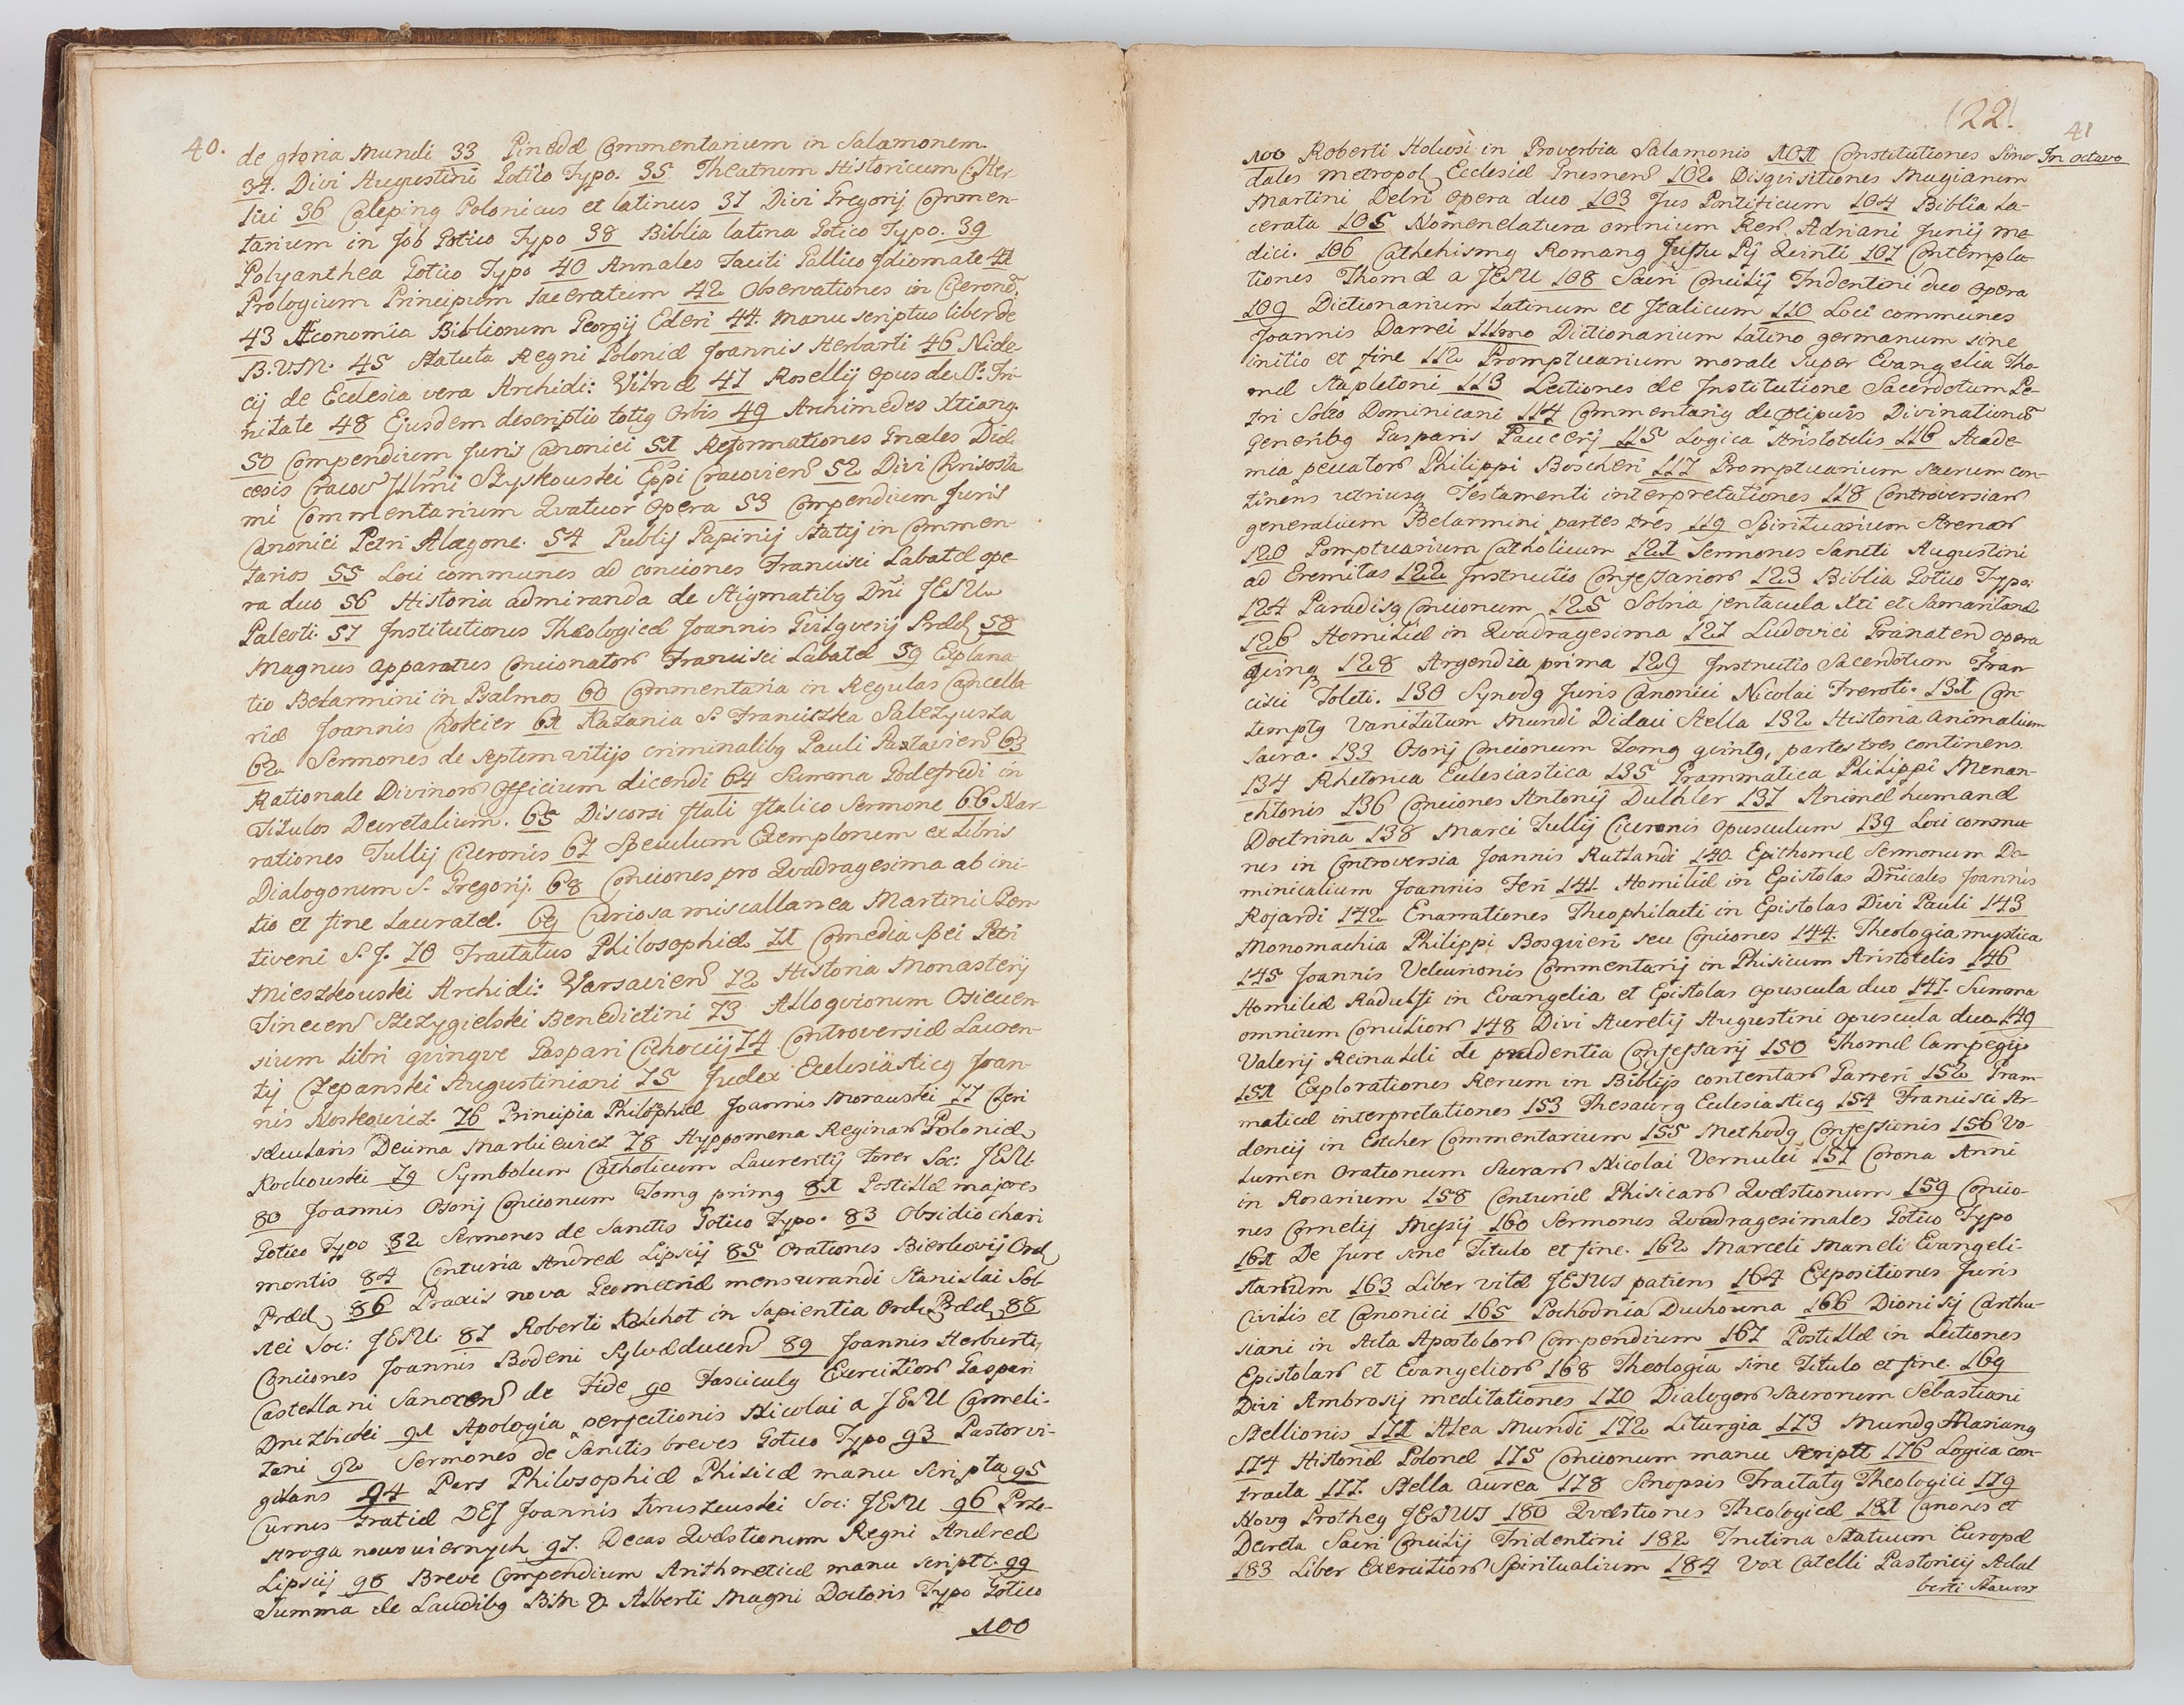 40.
de gloria Mundi 33 Pinedæ Commentarium in Salamonem.
34. Divi Augustini Gotico Typo. 35 Theatrum Historicum Chter-
lici 36 Calepinꝯ Polonicus et latinus 37 Divi Gregorij Commen-
tarium in Job Gotico Typo 38 Biblia latina Gotico Typo. 39
Polyanthea Gotico Typo 40 Annales Taciti Gallico Jdiomate 41
Prologium Principum 42 Observationes in Cicerone
43 Æconomia Bibliorum Georgij Ederi 44. Manu scriptus liber de
B.V.M. 45 Statuta Regni Poloniæ Joannis Herbarti 46 Nide
cij de Ecclesia vera Archidi: Vilnæ 47 Rosellij opus de S. Tri-
nitate 48 Ejusdem descriptio totiꝯ Orbis 49 Archimedes Xtianꝯ.
50 Compendium Juris Canonici 51 Reformationes Gnales Diæ-
cesis Cracov Jllmi Szyskowski Eppi Cracovien 52 Divi Chrisosto
mi Commentarium Qvatuor Opera 53 Compendium Juris
Canonici Petri Alagone. 54 Publij Papinij Statij in Commen-
tarios 55 Loci communes ad conciones Francisci Labatæ ope-
ra duo 56 Historia admiranda de Stigmatibꝯ Dni JESU
Paleoti. 57 Institutiones Theologicæ Joannis Præd. 58
Magnus Apparatus Concionator Francisci Labatæ 59 Explana
tio Belarmini in Psalmos 60 Commentaria in Regulas Cancella
riæ Joannis Chokier 61 Kazania S. Franciszka Salezyusza
62 Sermones de septem vitijs criminalibꝯ Pauli 63
Rationale Divinor Officium dicendi 64 Summa Godefredi in
Titulos Decretalium. 65 Discorsi Itali Italico Sermone 66 Nar-
rationes Tullij Ciceronis 67 Speculum Exemplorum ex libris
Dialogorum S. Gregorij. 68 Conciones pro Qvadragesima ab ini-
tio et fine Lauratæ. 69 Curiosa miscallanea Martini Sten
tiveni S.J. 70 Tractatus Philosophiæ 71 Comedia Spei Petri
Mieszkowski Archidi: Varsavien 72 Historia Monasterij
Tinecen Szczygielski Benedictini 73 Alloqviorum Osiecen-
sium libri qvinqve Gaspari Cichocij 74 Controversiæ Lauren-
tij Czepanski Augustiniani 75 Judex Ecclesiasticꝯ Joan-
nis Noskowicz. 76 Principia Philosphiæ Joannis Morawski 77 Cleri
sæcularis Decima Markiewicz 78 Hyppomena Reginar Poloniæ
Kochowski 79 Symbolum Catholicum Laurentij Forer Soc: JESU.
80 Joannis Osorij Concionum Tomꝯ primꝯ 81 Postillæ majores
Gotico Typo 82 Sermones de Sanctis Gotico Typo. 83 Obsidio chari
montis 84 Centuria Andreæ Lipscij 85 Orationes Bierkovij Ord
Præd 86 Praxis nova Geometriæ mensurandi Stanislai Sol-
skei Soc: JESU. 87 Roberti Holchot in Sapientia Ord. Præd. 88
Conciones Joannis Bodeni Sylvæducen 89 Joannis Herburti,
Castellani Sanocen de Fide 90 Fasciculꝯ Exercitior Gaspari
Druzbicki 91 Apologia perfectionis Nicolai a JESU Carmeli-
tani 92 Sermones de Sanctis breves Gotico Typo 93 Pastor vi-
gilans 94 Pars Philosophiæ Phisicæ manu scripta 95
Currus Gratiæ DEJ Joannis Krus Soc: JESU 96 Prze-
stroga nowowiernych 97. Decas Qvæstionum Regni Andreæ
Lipscij 98 Breve Compendium Arithmeticæ manu script. 99
Summa de Laudibꝯ BMV. Alberti Magni Doctoris Typo Gotico
100
(22).
41
In octavo
100 Roberti Holcosi in Proverbia Salamonis 101 Constitutiones Sino
dales metropol. Ecclesiæ Gnesnen 102 Disqvisitiones Magicarum
Martini Delri Opera duo 103 Jus Pontificum 104 Biblia la-
cerata 105 Nomenclatura omnium Rer. Adriani Junij me
dici. 106 Cathehismꝯ Romanꝯ Jussu Pij Qvinti 107 Contempla-
tiones Thomæ a JESU 108 Sacri Concilij Tridentini duo Opera
109 Dictionarium Latinum et Italicum 110 Loci communes
Joannis Darrei 111mo Dictionarium Latino germanum sine
initio et fine 112 Promptuarium morale super Evangelia Tho-
mæ Stapletoni 113 Lectiones de Institutione Sacerdotum Pe-
tri Soto Dominicani 114 Commentariꝯ de præcipuis Divinationũ
generibꝯ Gasparis Peucerij 115 Logica Aristotelis 116 Acade-
mia peccator Philippi Boscheri 117 Promptuarium sacrum con-
tinens utriusqꝫ Testamenti interpretationes 118 Controversiar
generalium Belarmini partes tres 119 Spirituarium Strenar
120 Pomptuarium Catholicum 121 Sermones Sancti Augustini
ad Eremitas 122 Instructio Confessarior 123 Biblia Gotico Typo.
124 Paradisꝯ Concionum 125 Sobria jentacula Xti et Samaritanæ
126 Homiliæ in Qvadragesima 127 Ludovici Granaten Opera
qvinqꝫ 128 Argendia prima 129 Instructio Sacerdotum Fran-
cisci Toleti. 130 Synodꝯ Juris Canonici Nicolai Freroti. 131 Con-
temptꝯ Vanitatum Mundi Didaci Stella 132 Historia Animalium
sacra. 133 Osorij Concionum Tomꝯ qvintꝯ, partes tres continens
134 Rhetorica Ecclesiastica 135 Grammatica Philippi Menan-
chtonis 136 Conciones Antonij Dulhler 137 Animæ humanæ
Doctrina 138 Marci Tullij Ciceronis Opusculum 139 Loci commu-
nes in Controversia Joannis Rutlandi 140 Epithomæ Sermonum Do-
minicalium Joannis Feri 141. Homiliæ in Epistolas Dnicales Joannis
Rojardi 142 Enarrationes Theophilacti in Epistolas Divi Pauli 143
Monomachia Philippi Bosqvieri seu Conciones 144. Theologia mystica
145 Joannis Velcurionis Commentarij in Phisicum Aristotelis 146
Homiliæ Radulfi in Evangelia et Epistolas opuscula duo 147. Summa
omnium Concilior 148 Divi Aurelij Augustini opuscula duo. 149
Valerij Reinaldi de prudentia Confessarij 150 Thomæ Campegij
151 Explorationes Rerum in Biblijs contentar Garreri 152 Gram-
maticæ interpretationes 153 Thesaurꝯ Ecclesiasticꝯ 154 Francisci Ar-
dencij in Escher Commentarium 155 Methodꝯ Confessionis 156 Vo-
lumen Orationum Sacrar Nicolai Vernulei 157 Corona Anni
in Rosarium 158 Centuriæ Phisicar Qvæstionum 159 Concio-
nes Cornelij Musij 160 Sermones Qvadragesimales Gotico Typo
161 De Jure sine Titulo et fine. 162 Marceli Maneli Evangeli-
starum 163 Liber vitæ JESUS patiens 164 Expositiones Juris
Civilis et Canonici 165 Pochodnia Duchowna 166 Dionisij Carthu-
siani in Acta Apostolor Compendium 167 Postillæ in Lectiones
Epistolar et Evangelior 168 Theologia sine Titulo et fine. 169
Divi Ambrosij meditationes 170 Dialogor Sacrorum Sebastiani
Stellionis 171 Alea Mundi 172 Liturgia 173 Mundꝯ Marianꝯ
174 Historiæ Polonæ 175 Concionum manu script 176 Logica con-
tracta 177. Stella aurea 178 Sinopsis Tractatꝯ Theologici 179
Novꝯ Protheꝯ JESUS 180 Qvæstiones Theologicæ 181 Canones et
Decreta Sacri Concilij Tridentini 182 Trutina Statuum Europæ
183 Liber Exercitior Spiritualium 184 Vox Catelli Pastoricij Adal
berti